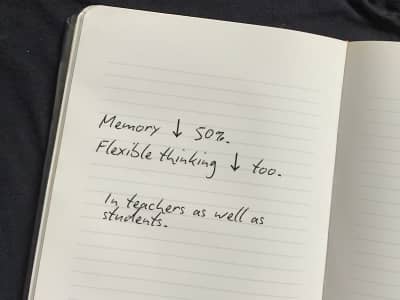 Memory ↓ 50%.
Flexible thinking ↓ too.
In teachers as well as
students.